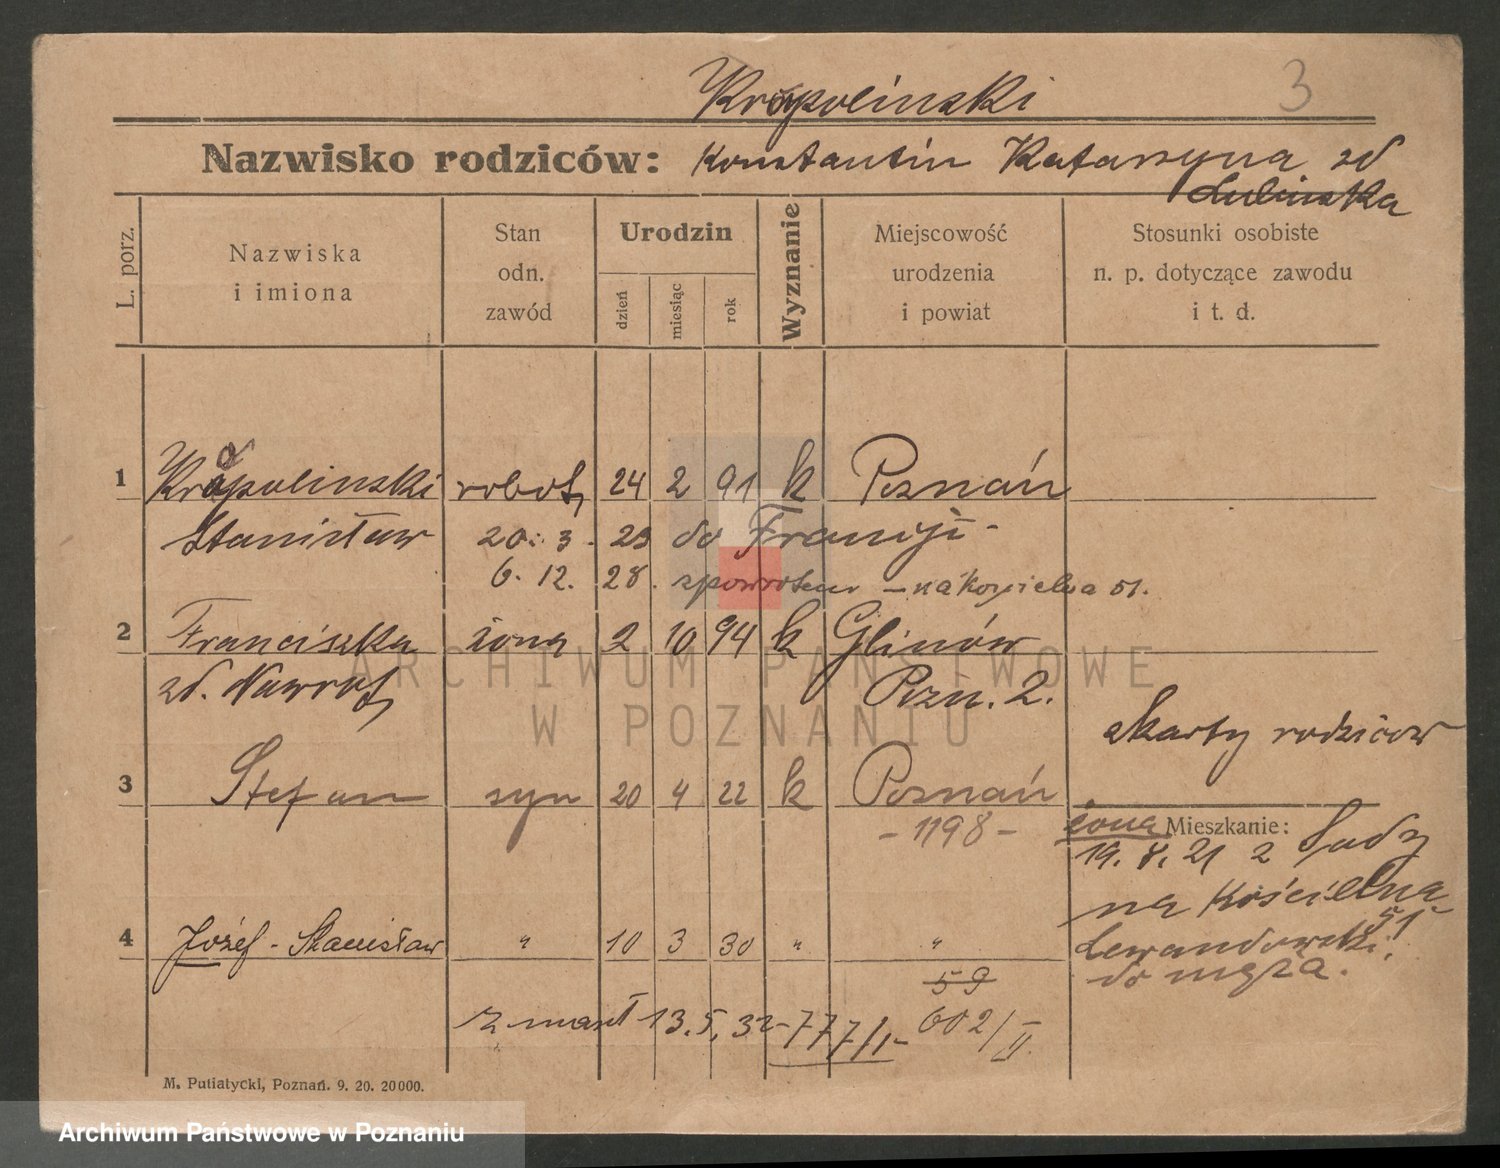 Kropolinski 3
Nazwisko rodziców: Konstantin Katarzyna zd
Lulinska
L. porz.
Nazwiska
i imiona
Stan
odn.
zawód
Urodzin
dzień
miesiąc
rok
Wyznanie
Miejscowość
urodzenia
i powiat
Stosunki osobiste
n. p. dotyczące zawodu
i t. d.
1 Kropolinski robot. 24 2 91 k Poznań
Stanisław 20. 3. 23 do Francji -
6. 12. 28. spowrotem - na Kościelna 51.
2 Franciszka żona 2 10 94 k Glinów
zd. Nawrot Pozn. 2.
z karty rodziców
3 Stefan syn 20 4 22 k Poznań
- 1198 -
żona Mieszkanie:
19. 8. 21 z
na Kościelna
51
Lewandowski!
do męża.
4 Józef - Stanisław " 10 3 30 " "
59
zmarł 13. 5. 32 - 777/I - 602/II.
M. Putiatycki, Poznań. 9. 20. 20000.
ARCHIWUM PAŃSTWOWE
W POZNANIU
Archiwum Państwowe w Poznaniu